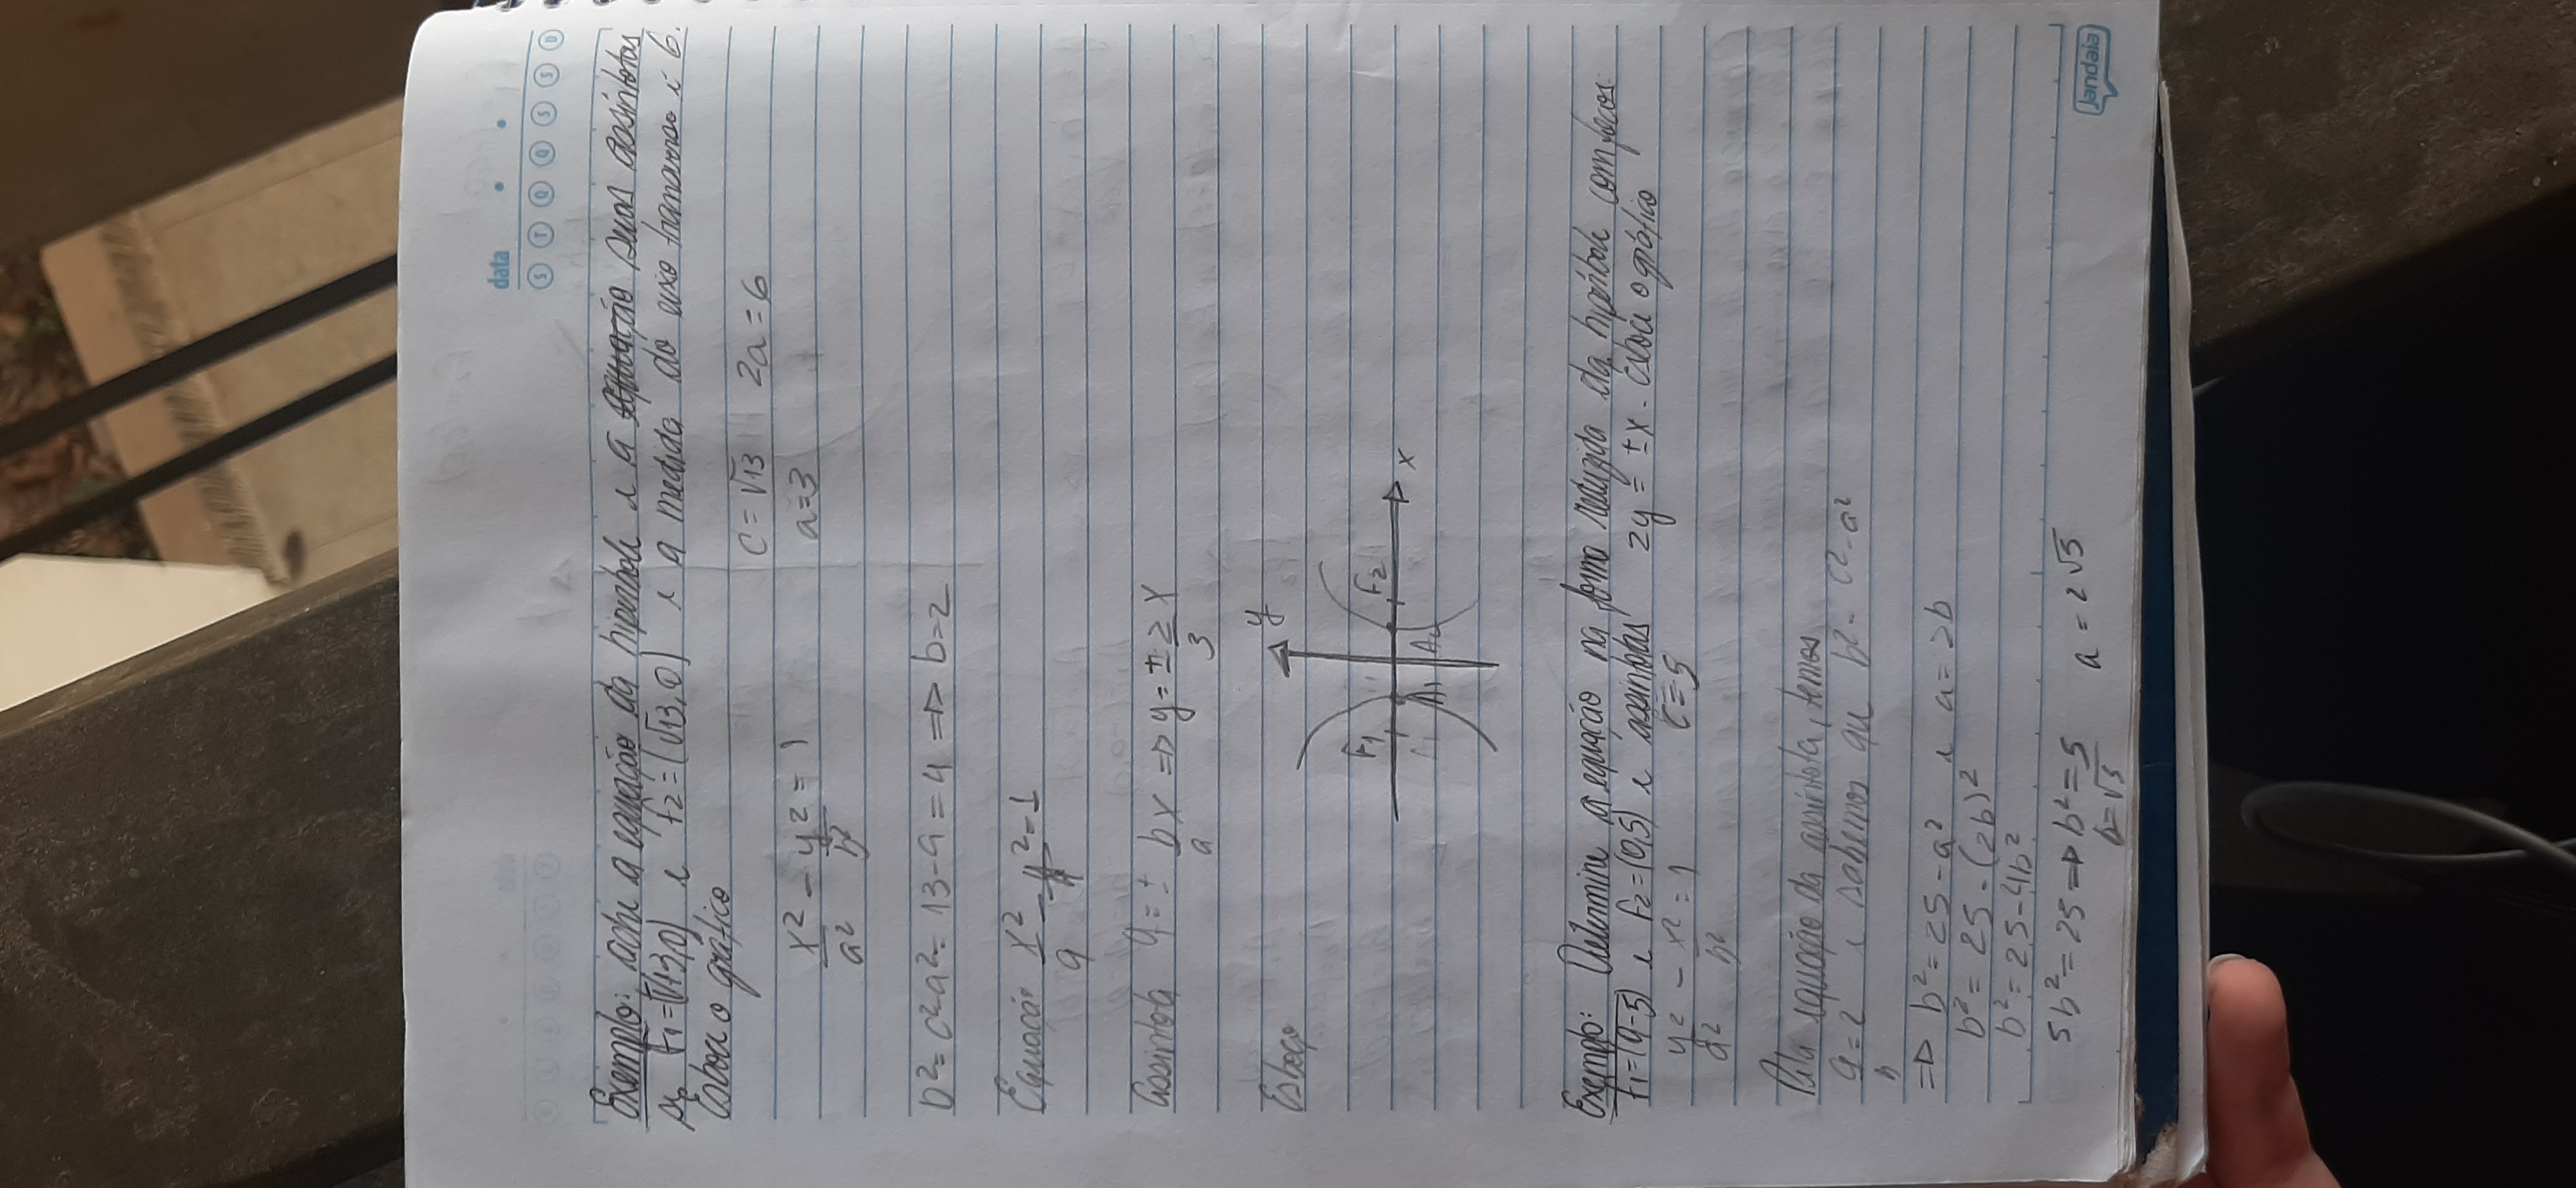 data
S T Q Q S S D
Exemplo: Ache a equação da hipérbole e a suas assíntotas
F1 = (√13,0) e F2 = (√13,0) e a medida do eixo transverso é 6.
Esboce o gráfico
C = √13 2a = 6
x² - y² = 1 a = 3
a² b²
b² = c² a² = 13 - 9 = 4 => b = 2
Equação x² - y² = 1
9 4
Assíntota y = ± b x => y = ± 2 x
a 3
Esboço
y
F1 F2
x
A1 A1 A2
Exemplo: Determine a equação na forma reduzida da hipérbole com focos
F1 = (0,-5) e F2 = (0,5) e assíntotas 2y = ±x. Esboce o gráfico
y² - x² = 1 C = 5
a² b²
Pela equação da assíntota, temos
a = 2 e sabemos que b² = c² - a²
b
=> b² = 25 - a² e a = 2b
b² = 25 - (2b)²
b² = 25 - 4b²
5b² = 25 => b² = 5 a = 2√5
b = √5
jandaia